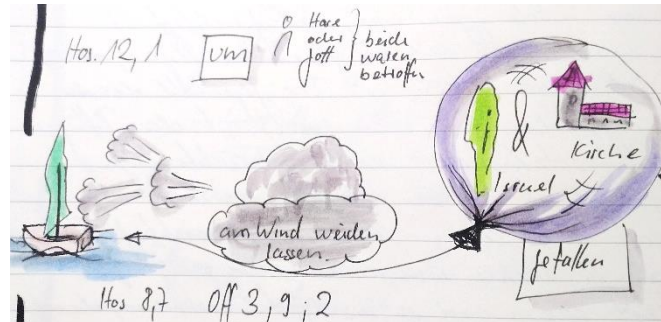 Hos. 12, 1
um
Hose
oder
Gott
beide
waren
betroffen
&
Kirche
Israel
am Wind weiden
lassen.
gefallen
Hos 8,7 Off 3, 9 ; 2